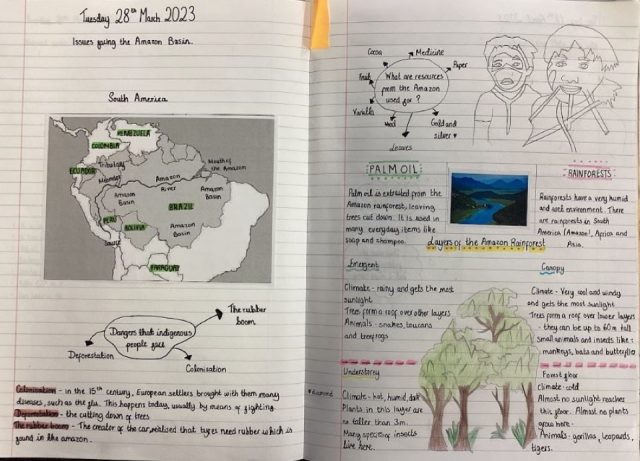 Tuesday 28th March 2023
Issues facing the Amazon Basin.
South America
VENEZUELA
COLOMBIA
ECUADOR
Tributary
Mouth of
the Amazon
Meander
Amazon
River
Amazon
Basin
Amazon
Basin
BRAZIL
PERU
BOLIVIA
Amazon
Basin
Source
PARAGUAY
The rubber
boom
Dangers that indigenous
people face
Deforestation
Colonisation
Colonisation - in the 15th century, European settlers brought with them many
diseases, such as the flu. This happens today, usually by means of fighting.
Deforestation - the cutting down of trees
The rubber boom - The creator of the car, realised that tyres need rubber which is
found in the amazon.
Cocoa
Medicine
Paper
Fruit
What are resources
from the Amazon
used for?
Vanilla
Wood
Gold and
silver
Leaves
PALM OIL
Palm oil is extracted from the
Amazon rainforest, leaving
trees cut down. It is used in
many everyday items like
soap and shampoo.
RAINFORESTS
Rainforests have a very humid
and wet environment. There
are rainforests in South
America (Amazon), Africa and
Asia.
Layers of the Amazon Rainforest
Emergent
Climate - rainy and gets the most
sunlight
Trees form a roof over other layers
Animals - snakes, toucans
and treefrogs
Canopy
Climate - Very cool and windy
and gets the most sunlight
Trees form a roof over lower layers
- they can be up to 60m tall
Small animals and insects like:
monkeys, bats and butterflies
Understorey
Climate - hot, humid, dark
Plants in this layer are
no taller than 3m.
Many species of insects
live here.
Forest floor
Climate - cold
Almost no sunlight reaches
this floor. Almost no plants
grow here.
Animals - gorillas, leopards,
tigers.